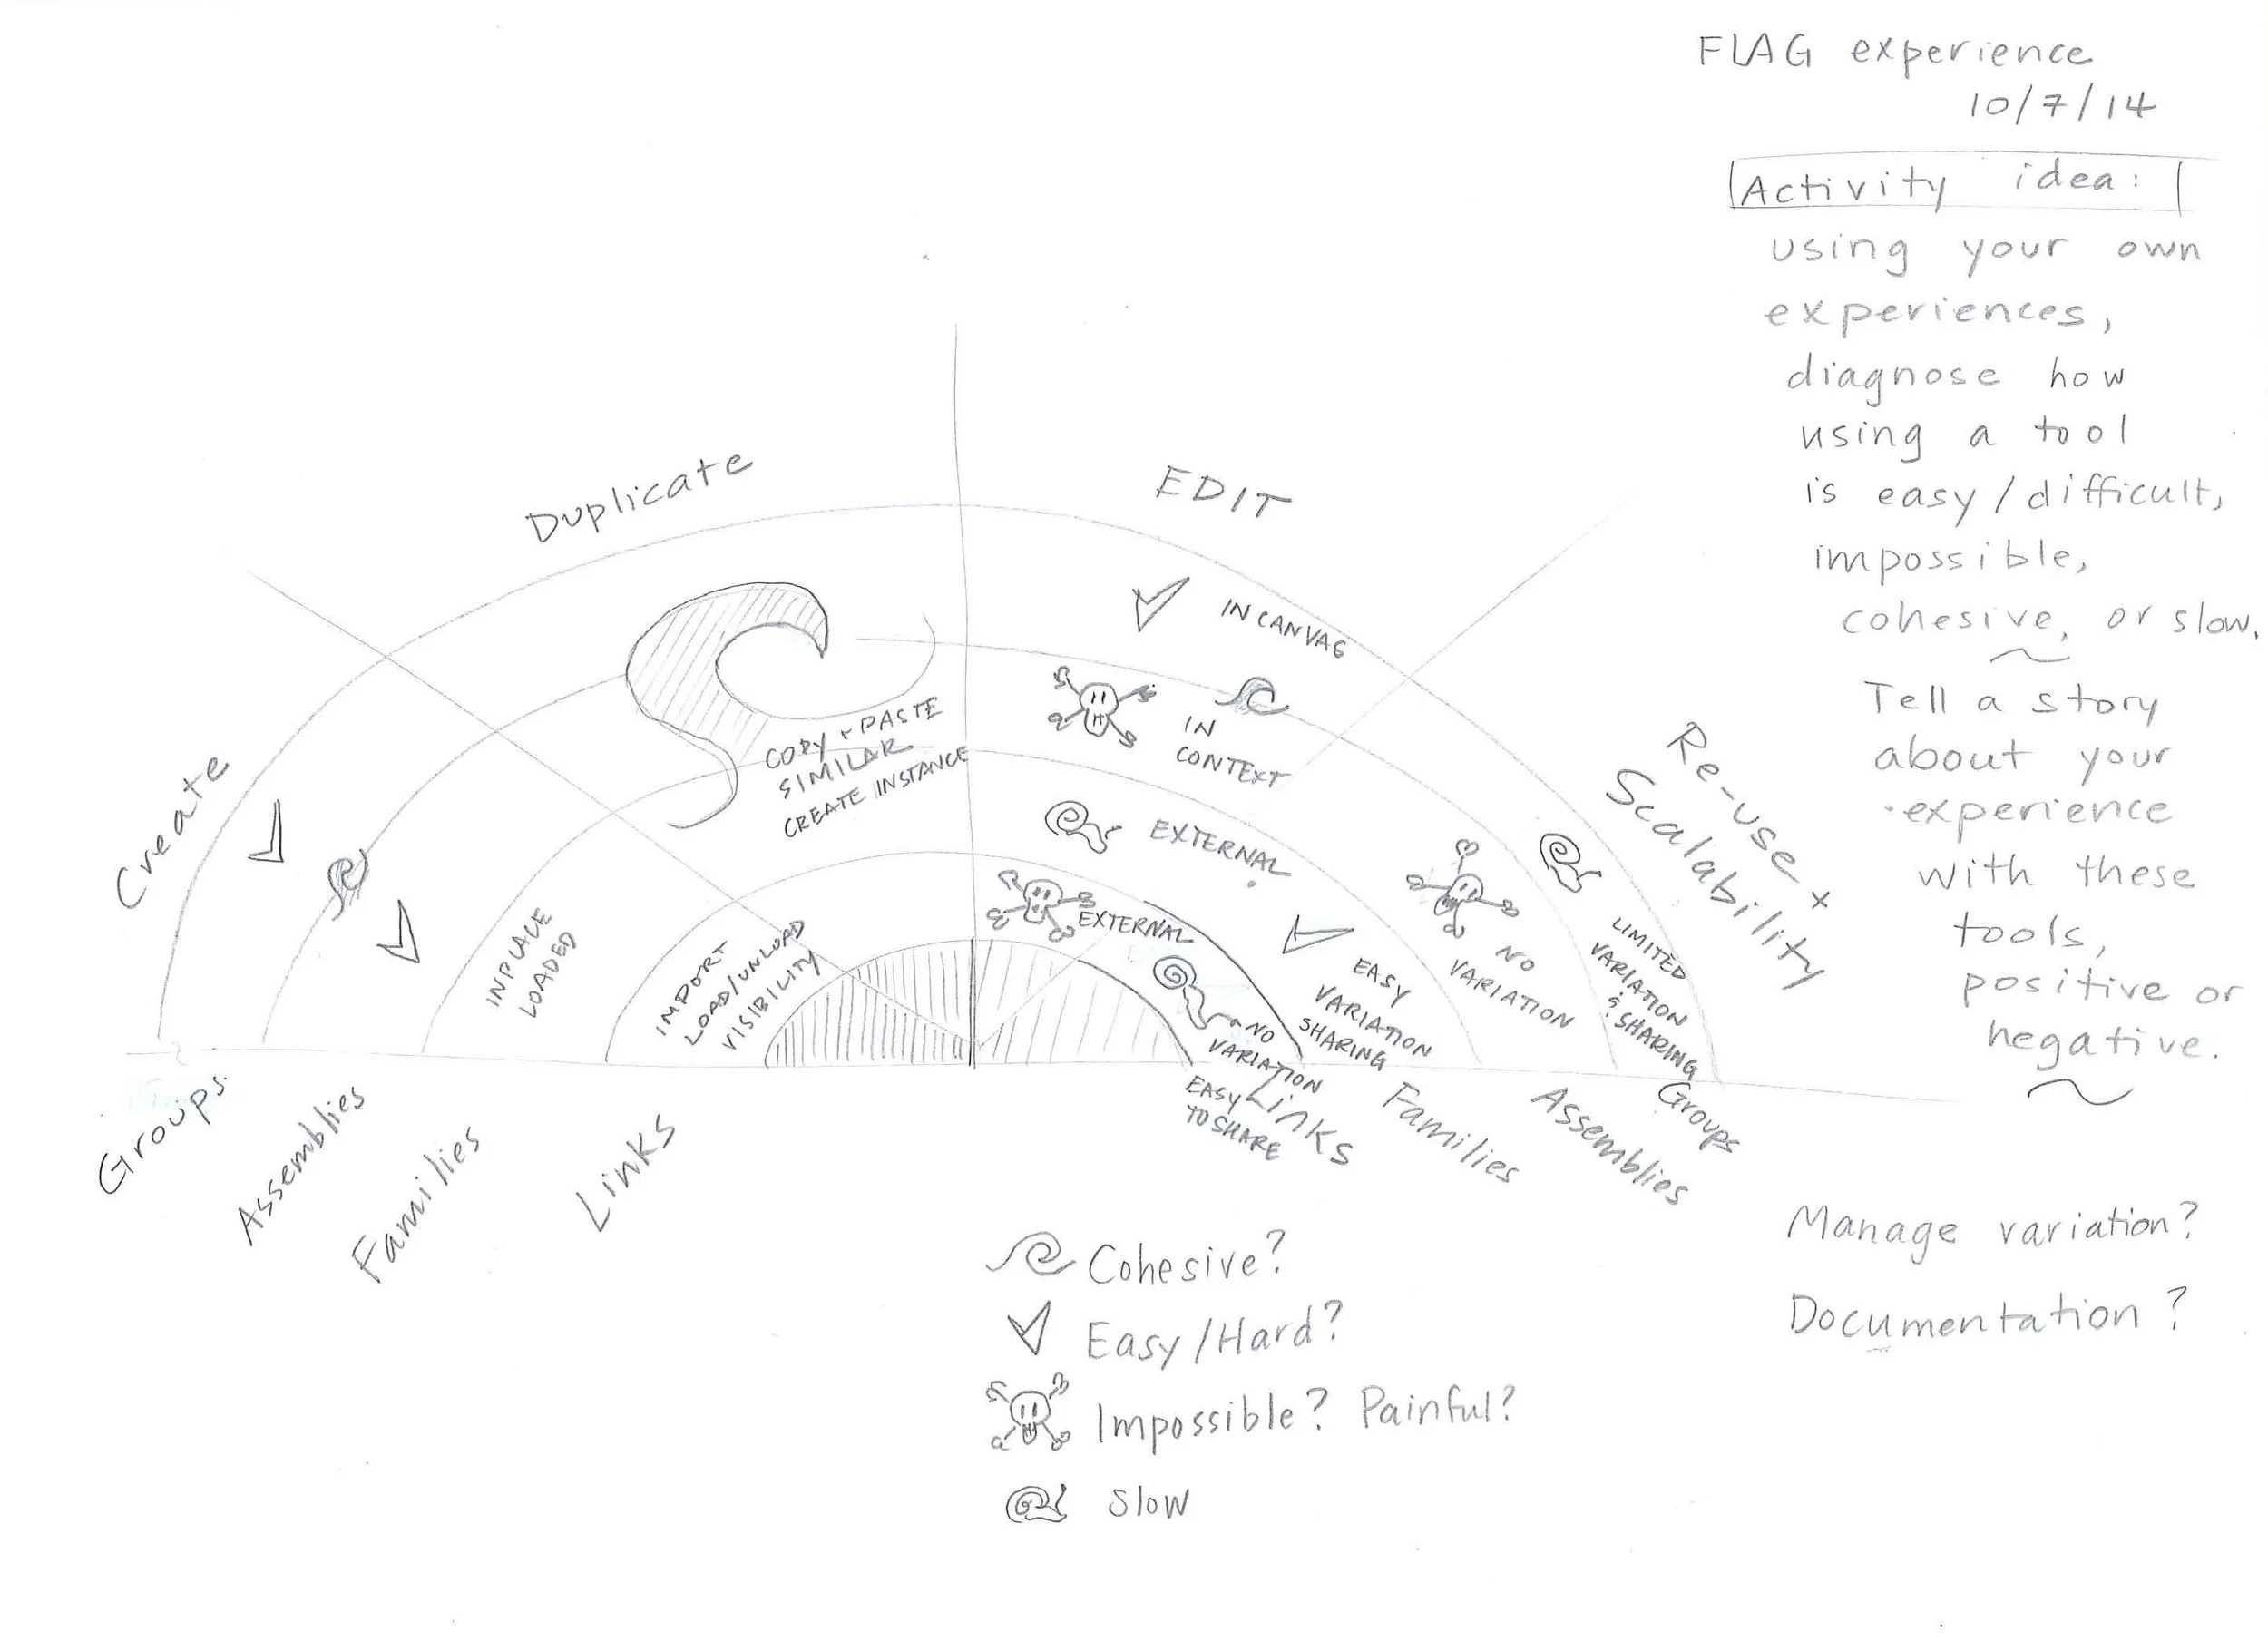 FLAG experience
10/7/14
Activity idea:
using your own
experiences,
diagnose how
using a tool
is easy/difficult,
impossible,
cohesive, or slow.
Tell a story
about your
experience
with these
tools,
positive or
negative.
Manage variation?
Documentation?
Create
Duplicate
EDIT
Re-use +
Scalability
IN CANVAS
COPY + PASTE
SIMILAR
CREATE INSTANCE
IN
CONTEXT
EXTERNAL
EXTERNAL
INPLACE
LOADED
IMPORT
LOAD/UNLOAD
VISIBILITY
NO
VARIATION
EASY
TO SHARE
EASY
VARIATION
SHARING
NO
VARIATION
LIMITED
VARIATION
& SHARING
Groups
Assemblies
Families
Links
Links
Families
Assemblies
Groups
Cohesive?
Easy/Hard?
Impossible? Painful?
Slow